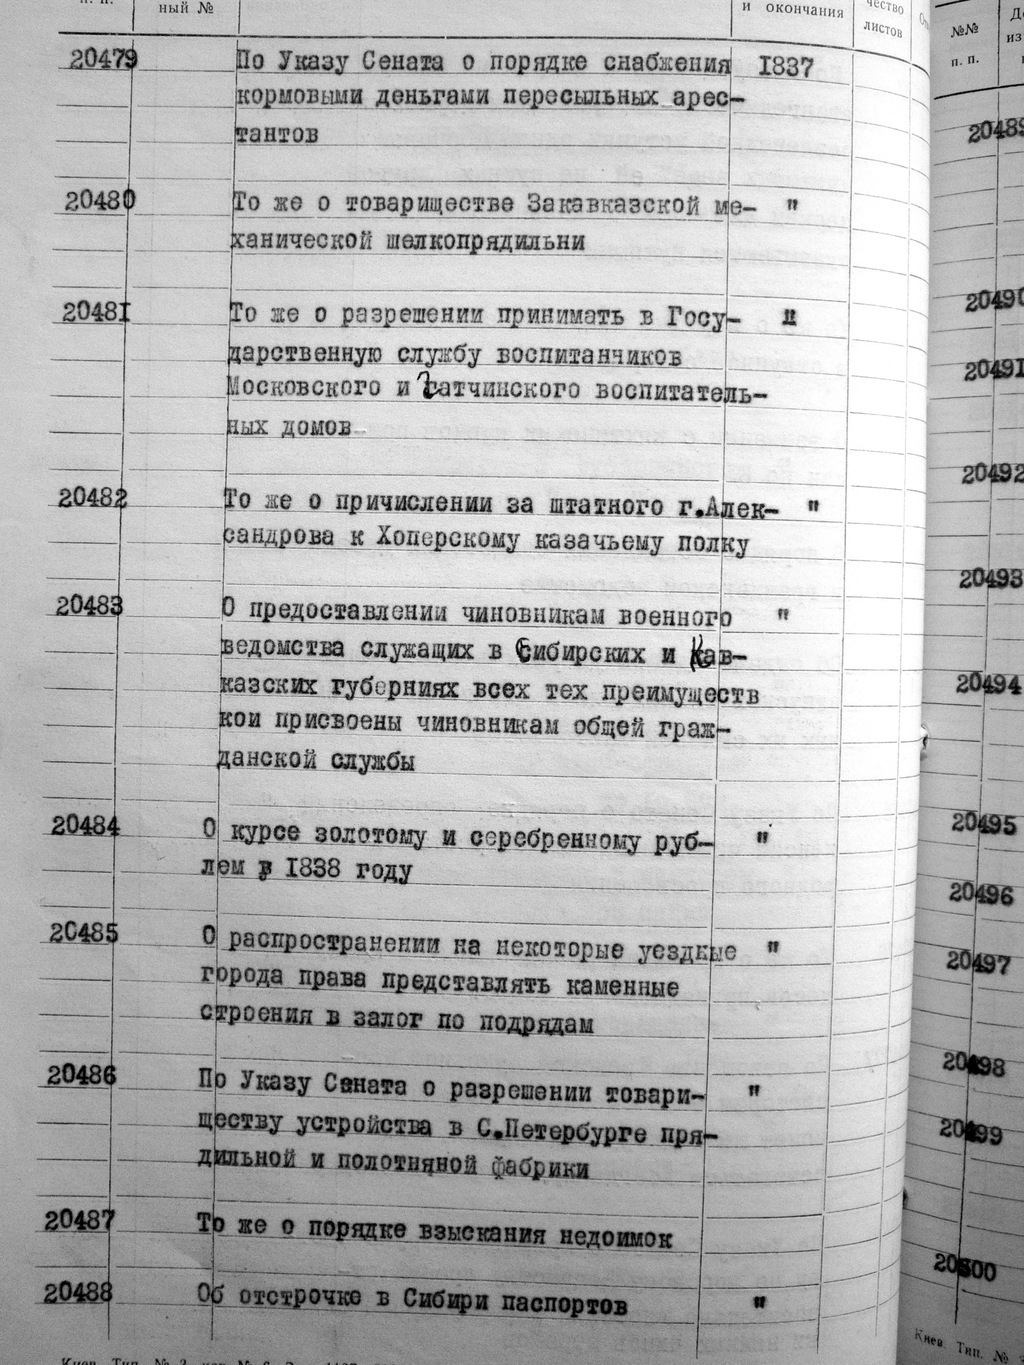 п. п.
ный №
и окончания
чество
листов
20479 По Указу Сената о порядке снабжения 1837
кормовыми деньгами пересыльных арес-
тантов
20480 То же о товариществе Закавказской ме- "
ханической шелкопрядильни
20481 То же о разрешении принимать в Госу- "
дарственную службу воспитанчиков
Московского и Гатчинского воспитатель-
ных домов
20482 То же о причислении за штатного г.Алек- "
сандрова к Хоперскому казачьему полку
20483 О предоставлении чиновникам военного "
ведомства служащих в Сибирских и Кав-
казских губерниях всех тех преимуществ
кои присвоены чиновникам общей граж-
данской службы
20484 О курсе золотому и серебренному руб- "
лем в 1838 году
20485 О распространении на некоторые уездные "
города права представлять каменные
строения в залог по подрядам
20486 По Указу Сената о разрешении товари- "
ществу устройства в С.Петербурге пря-
дильной и полотняной фабрики
20487 То же о порядке взыскания недоимок
20488 Об отстрочке в Сибири паспортов "
№№
п. п.
20489
20490
20491
20492
20493
20494
20495
20496
20497
20498
20499
20500
Киев Тип. №